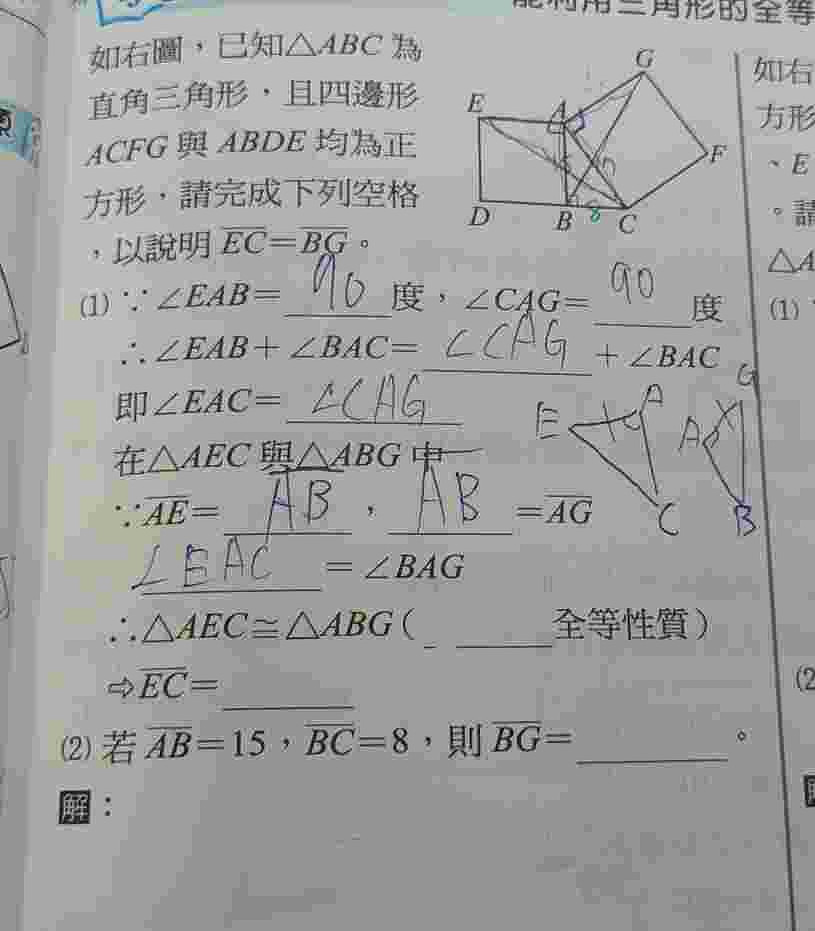 能利用三角形的全等
如右圖，已知△ABC為
直角三角形，且四邊形
ACFG與ABDE均為正
方形，請完成下列空格
，以說明EC=BG。
E A G F D B 8 C
(1) ∵∠EAB=90度，∠CAG=90度
∴∠EAB+∠BAC=∠CAG+∠BAC
即∠EAC=∠CAG
在△AEC與△ABG中
∵AE=AB，AB=AG
∠EAC=∠BAG
∴△AEC≅△ABG(_ ____全等性質)
⇨EC=____
(2) 若AB=15，BC=8，則BG=____。
解：
E A C
G A B
如右
方形
、E
。請
△A
(1)
(2